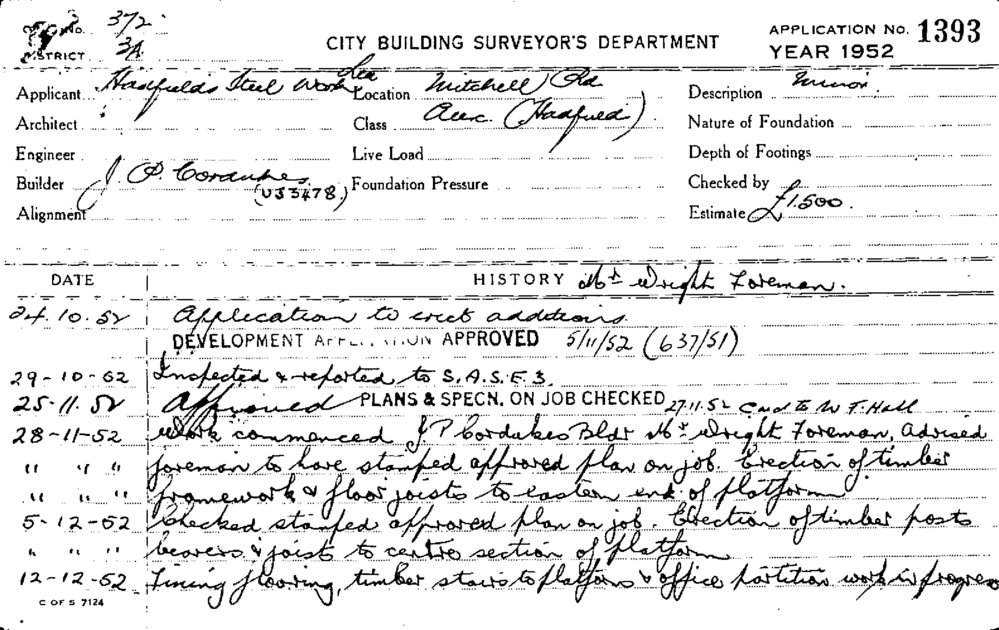 No. 372
DISTRICT 3A
CITY BUILDING SURVEYOR'S DEPARTMENT
APPLICATION No. 1393
YEAR 1952
Applicant Hadfields Steel Works Location Mitchell Rd Description Minor
Architect Class Alexc. (Hadfield) Nature of Foundation
Engineer Live Load Depth of Footings
Builder J. P. Cordukes (US3478) Foundation Pressure Checked by
Alignment Estimate £1,500.
DATE HISTORY Mr Wright Foreman.
24.10.52 Application to erect additions.
DEVELOPMENT APPLICATION APPROVED 5/11/52 (637/51)
29-10-52 Inspected & reported to S.A.S.E.3.
25.11.52 Approved PLANS & SPECN. ON JOB CHECKED 27.11.52 Card to W. F. Hall
28-11-52 Work commenced J P Cordukes Bldr Mr Wright Foreman, Advised
" " " foreman to have stamped approved plan on job. Erection of timber
" " " framework & floor joists to eastern end of platform
5-12-52 Checked stamped approved plan on job. Erection of timber posts
" " " bearers & joists to centre section of platform
12-12-52 Fixing flooring, timber stairs to platform & office partition work in progress
C OF S 7124